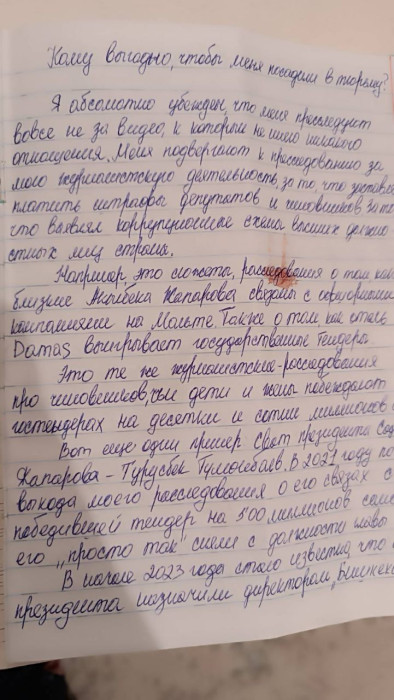 Кому выгодно, чтобы меня посадили в тюрьму?
Я абсолютно убежден, что меня преследуют
вовсе не за видео, к которым не имею никакого
отношения. Меня подвергают к преследованию за
мою журналистскую деятельность, за то, что заставлял
платить штрафы депутатов и чиновников, за то
что выявлял коррупционные схемы высших должно-
стных лиц страны.
Например, это сюжеты, расследования о том как
близкие Акылбека Жапарова связаны с оффшорными
компаниями на Мальте. Также о том, как отель
Damas выигрывает государственные тендеры.
Это те же журналистские-расследования
про чиновников, чьи дети и жены побеждают
гостендерах на десятки и сотни миллионов
Вот еще один пример сват президента
Жапарова - Турусбек Тумонбаев. В 2021 году
выхода моего расследования о его связах с
победившей тендер на 500 миллионов
его „просто так" сняли с должности
В начале 2023 года стало известно, что
президента назначили директором „